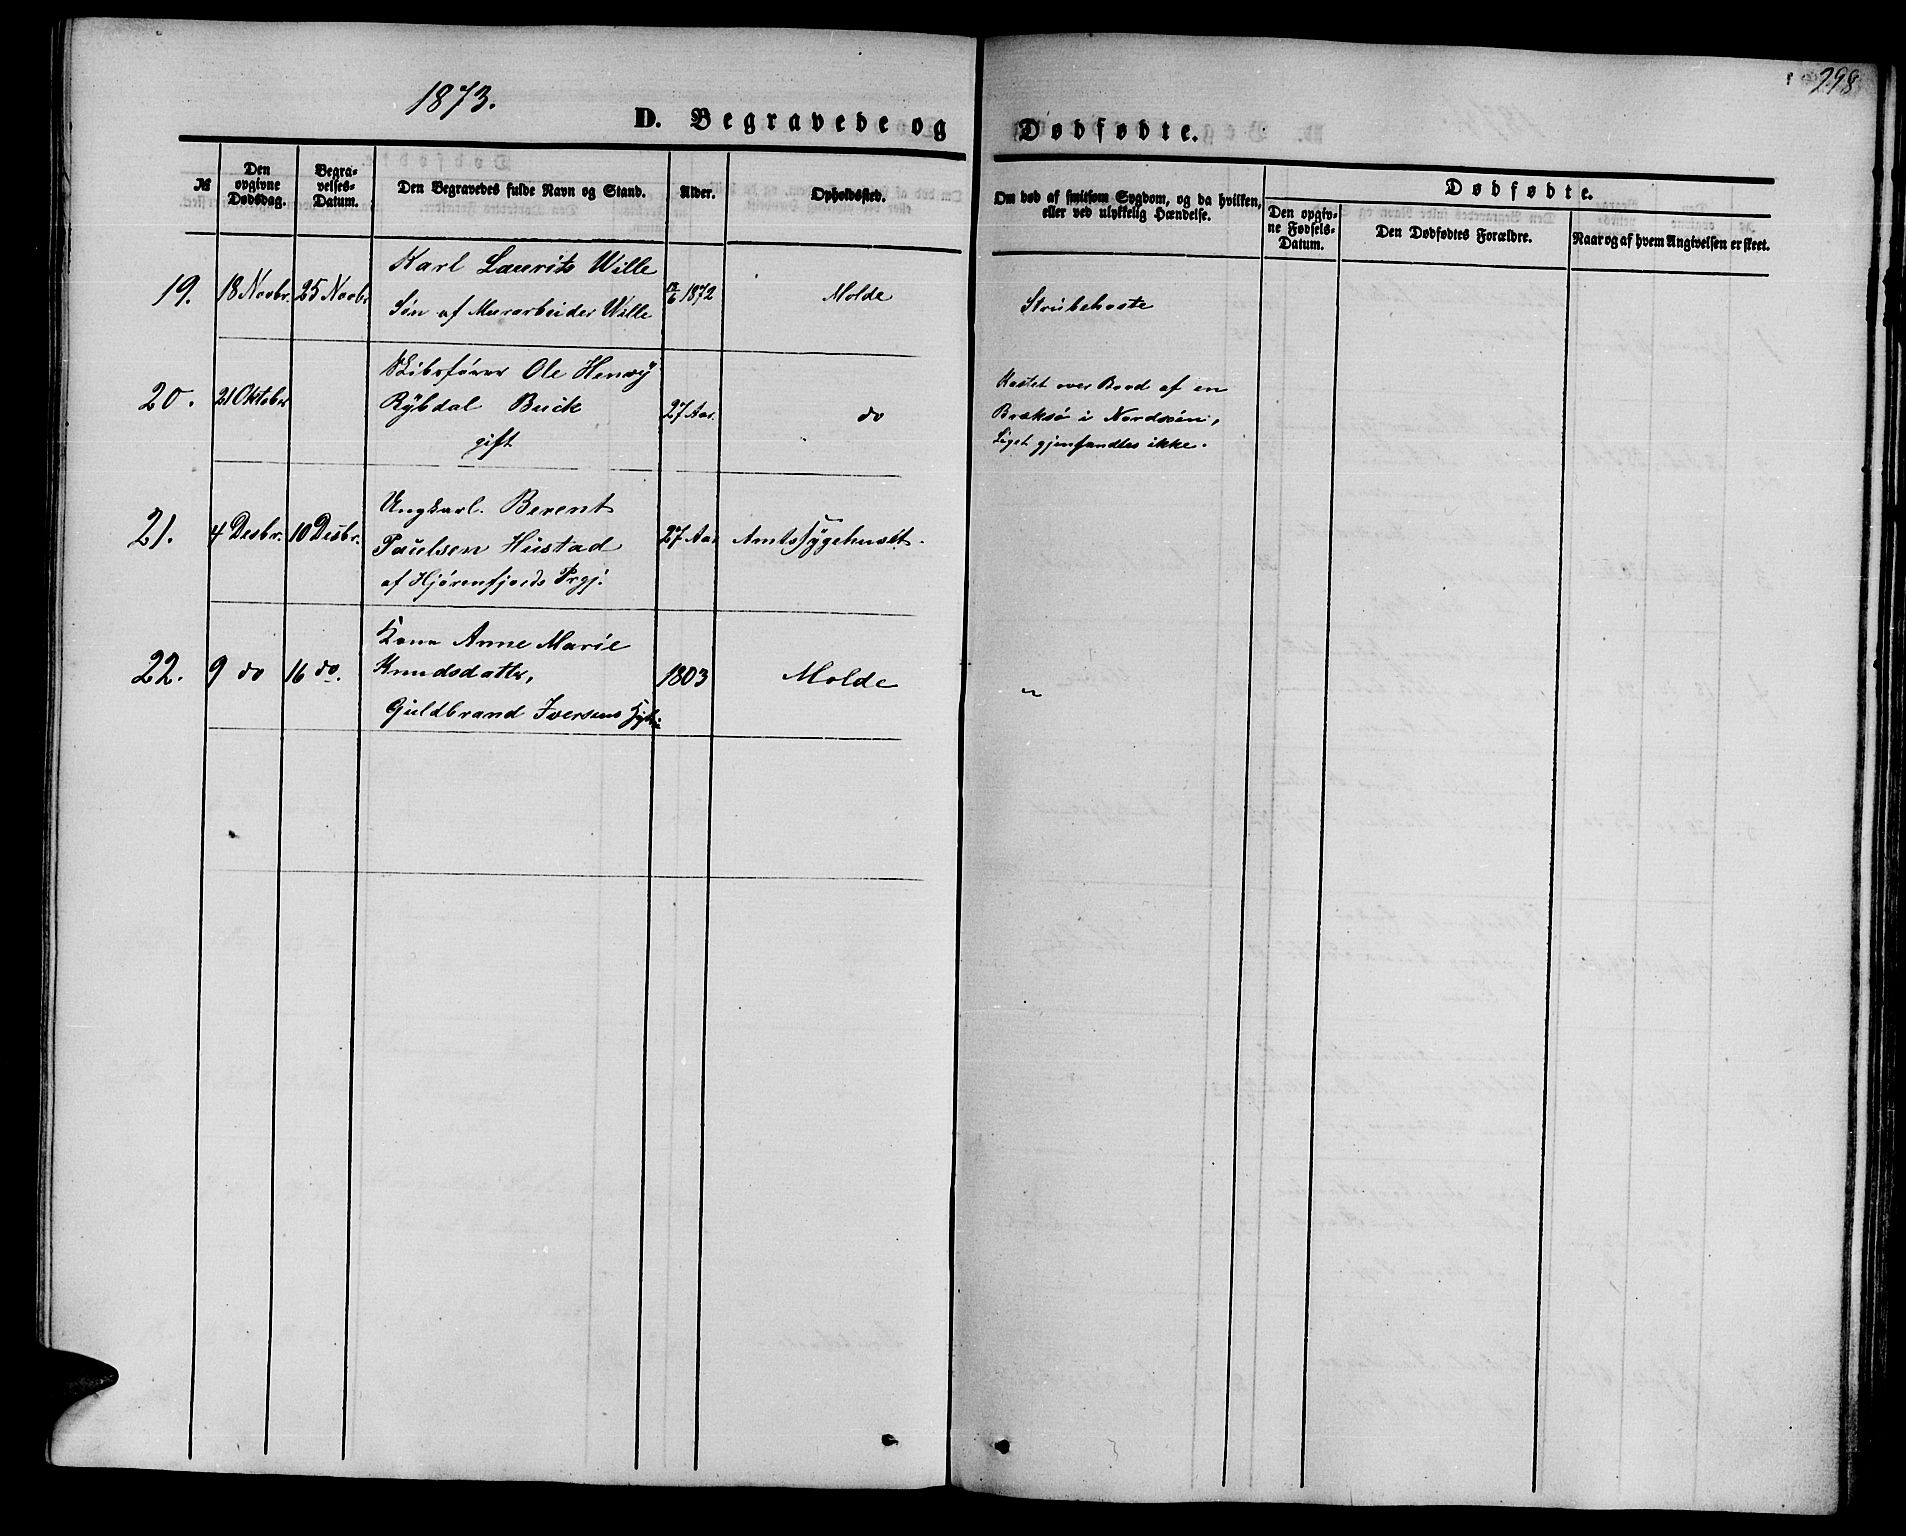 298
1873.
D. Begravede og Dødfødte.
№
Den opgivne Dødsdag.
Begravelses-Datum.
Den Begravedes fulde Navn og Stand.
Alder.
Opholdssted.
Om død af smitsom Sygdom, og da hvilken, eller ved ulykkelig Hændelse.
Dødfødte.
Den opgivne Fødsels-Datum.
Den Dødfødtes Forældre.
Naar og af hvem Angivelsen er skeet.
19. 18 Novbr. 25 Novbr
Karl Laurits Wille
Søn af Murarbeider Wille
1872
Molde
Strubehoste
20. 21 Oktober
Skibsfører Ole Henrÿ
Rÿbdal Buck
gift
27 Aar.
do
Kastet over Bord af en
Braksø i Nordsøen,
Liget gjenfandtes ikke.
21. 4 Desbr. 10 Desbr.
Ungkarl. Berent
Paulsen Hustad
af Hjørenfjords Prgj.
27 Aar
Amtssygehuset.
22. 9 do 16 do.
Kone Anne Marie
Knudsdatter,
Guldbrand Iversens
1803
Molde
"